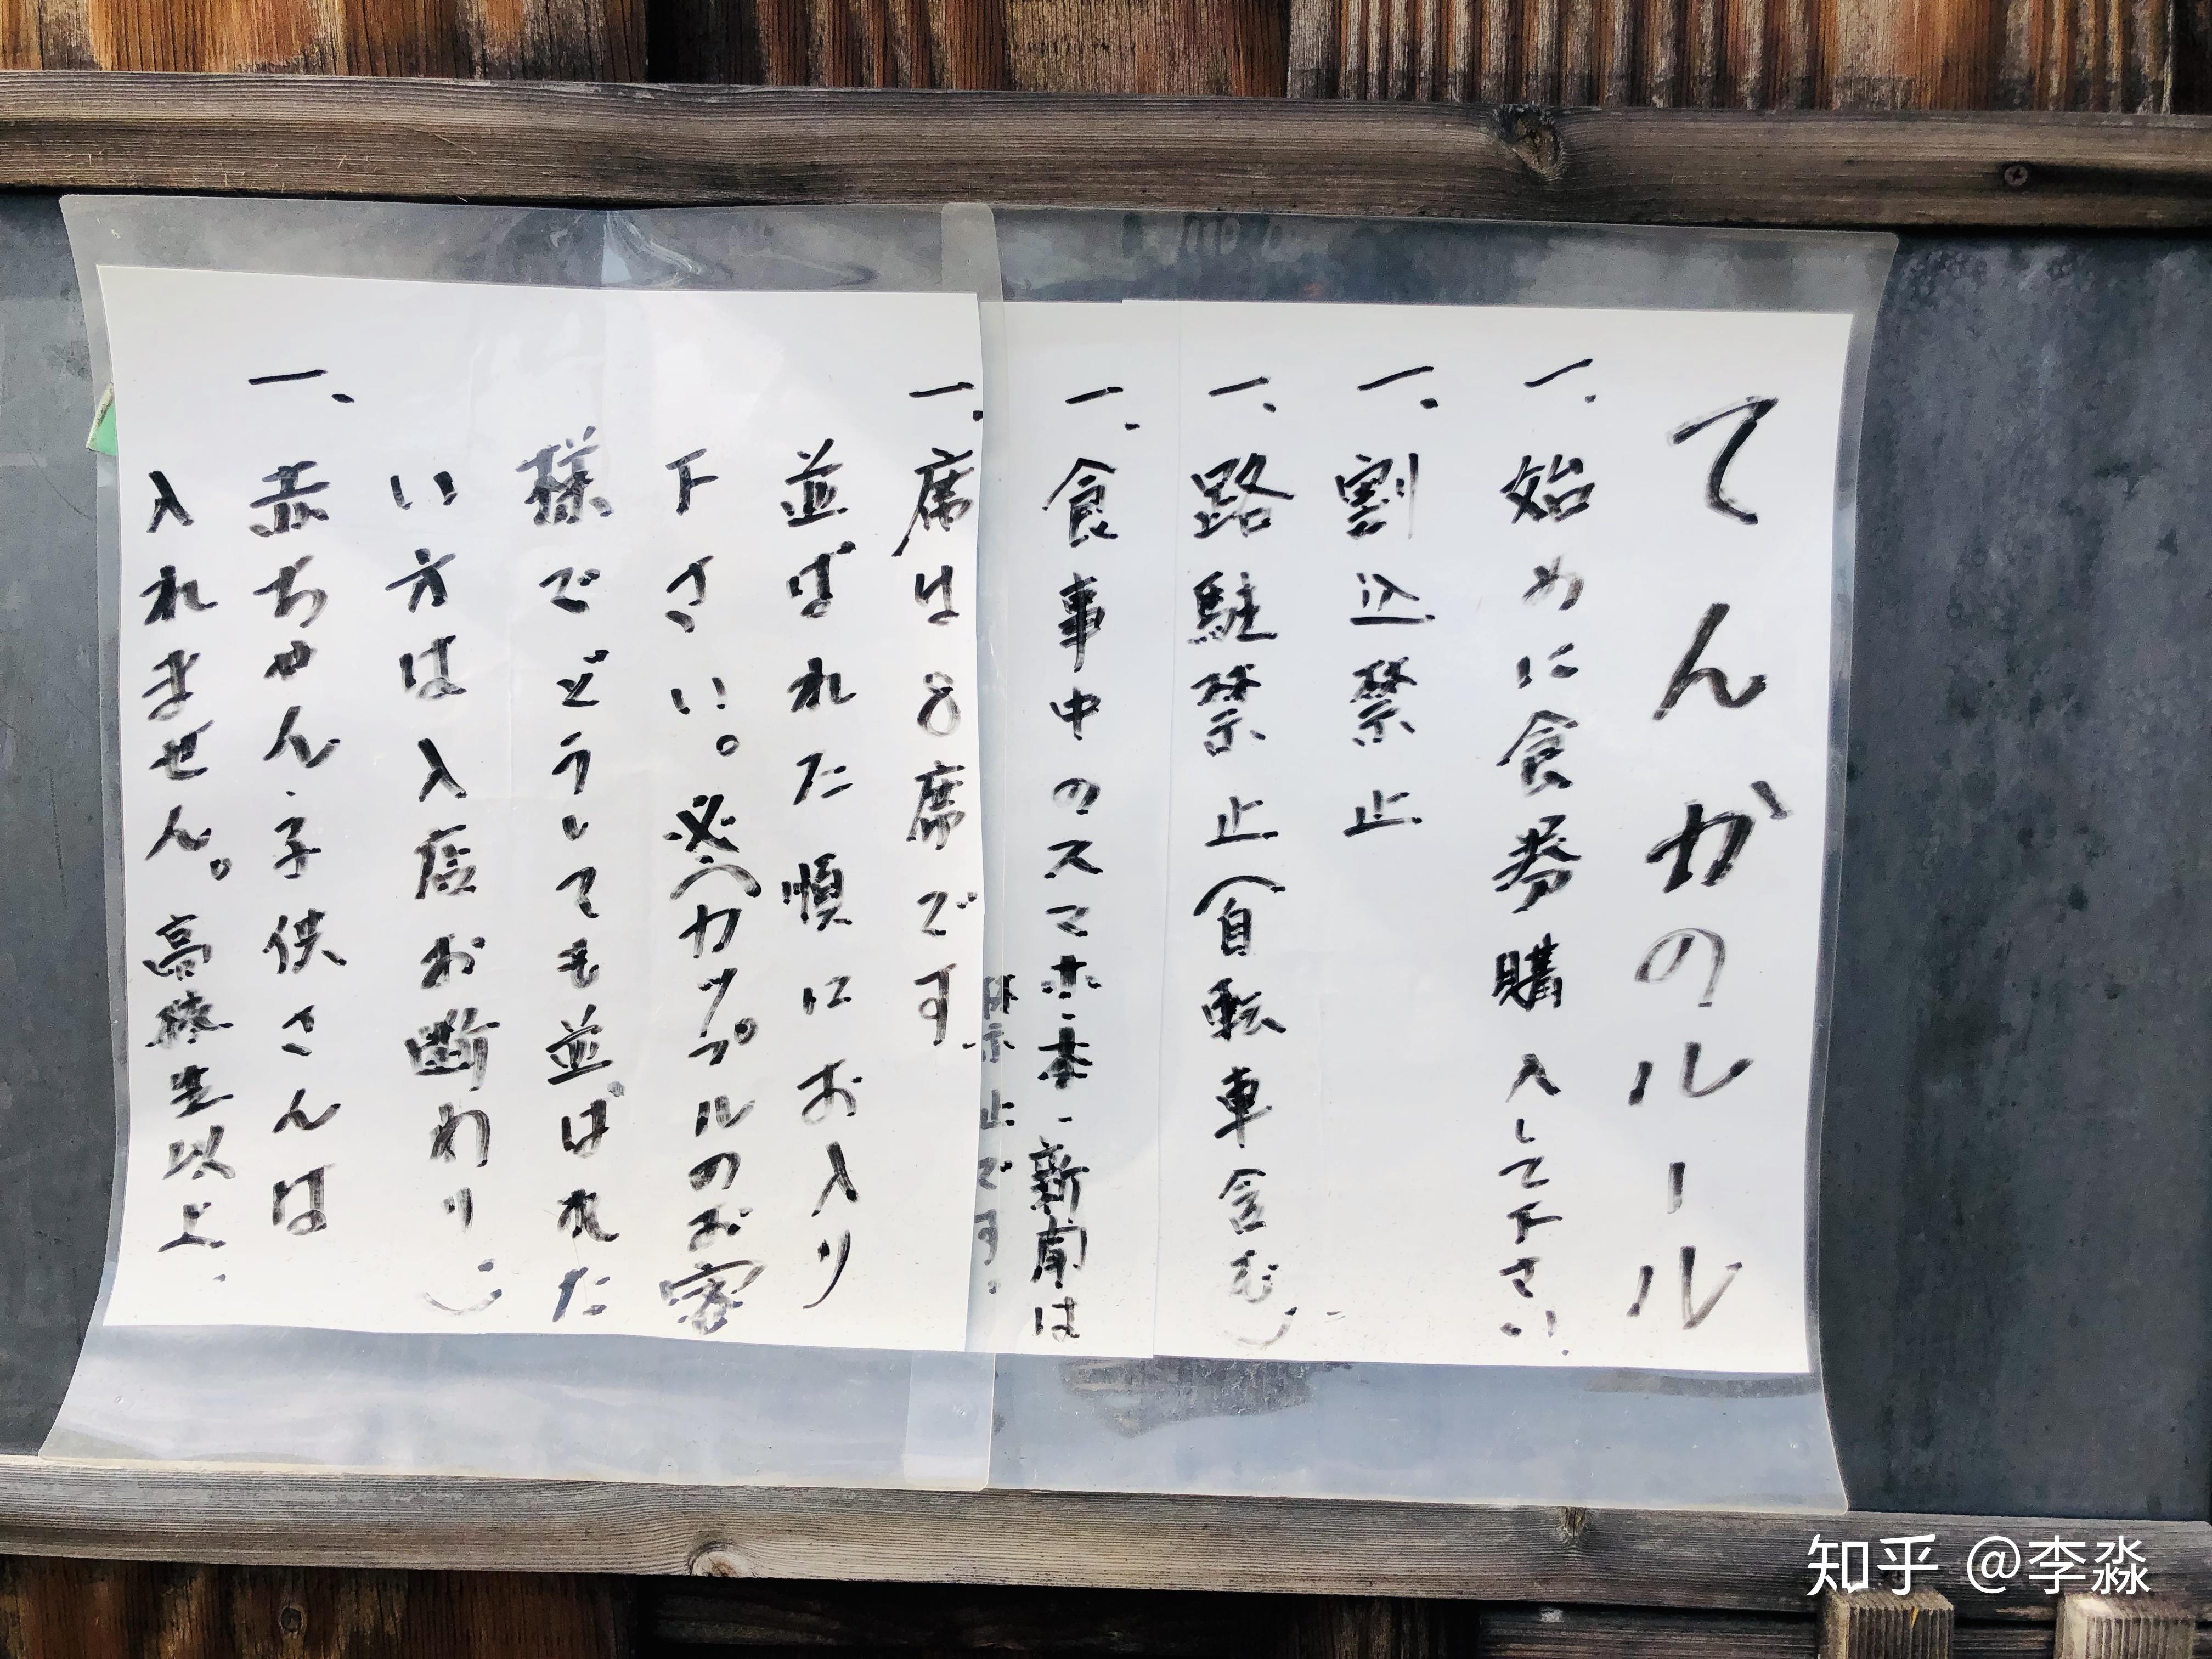 てんかのルール
一、始めに食券購入して下さい.
一、割込禁止
一、路駐禁止(自転車含む)
一、食事中のスマホ・本・新聞は
禁止です。
一、席は8席です.
並ばれた順にお入り
下さい。必ず(カップルのお客
様でどうしても並ばれた
い方は入店お断わり)
一、赤ちゃん・子供さんは
入れません。高校生以上.
知乎 @李淼